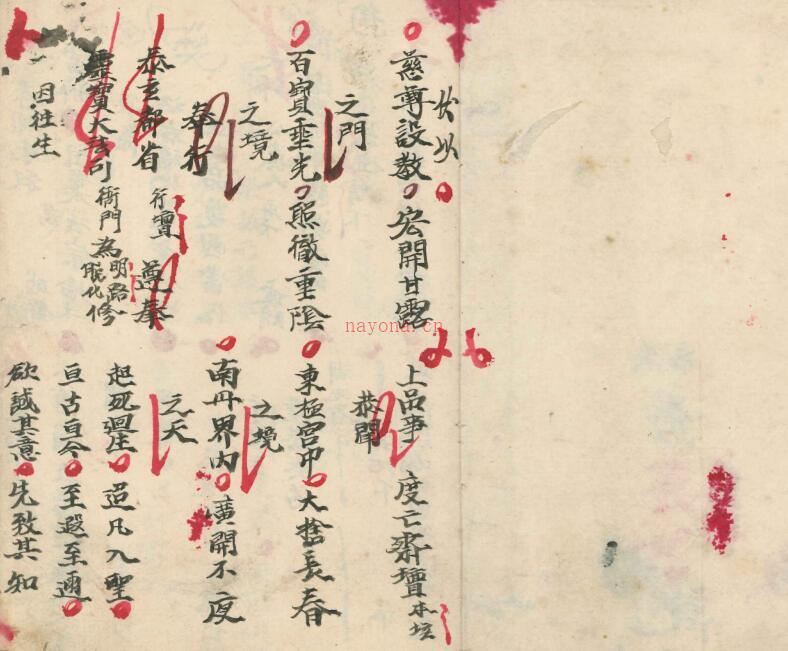 伏以
慈尊設教宏開甘露
之門
百寶垂光照徹重陰
之境
奉行
泰玄都省行壇遵奉
靈寶大法司衙門為明路脫化修
因往生
上品事度亡齋壇本坛
恭聞
東極宮中大捨長春
之境
南丹界内廣開不夜
之天
起死廻生迢凡入聖
亘古亘今至遐至邇
欲誠其意先致其知
nayona.cn